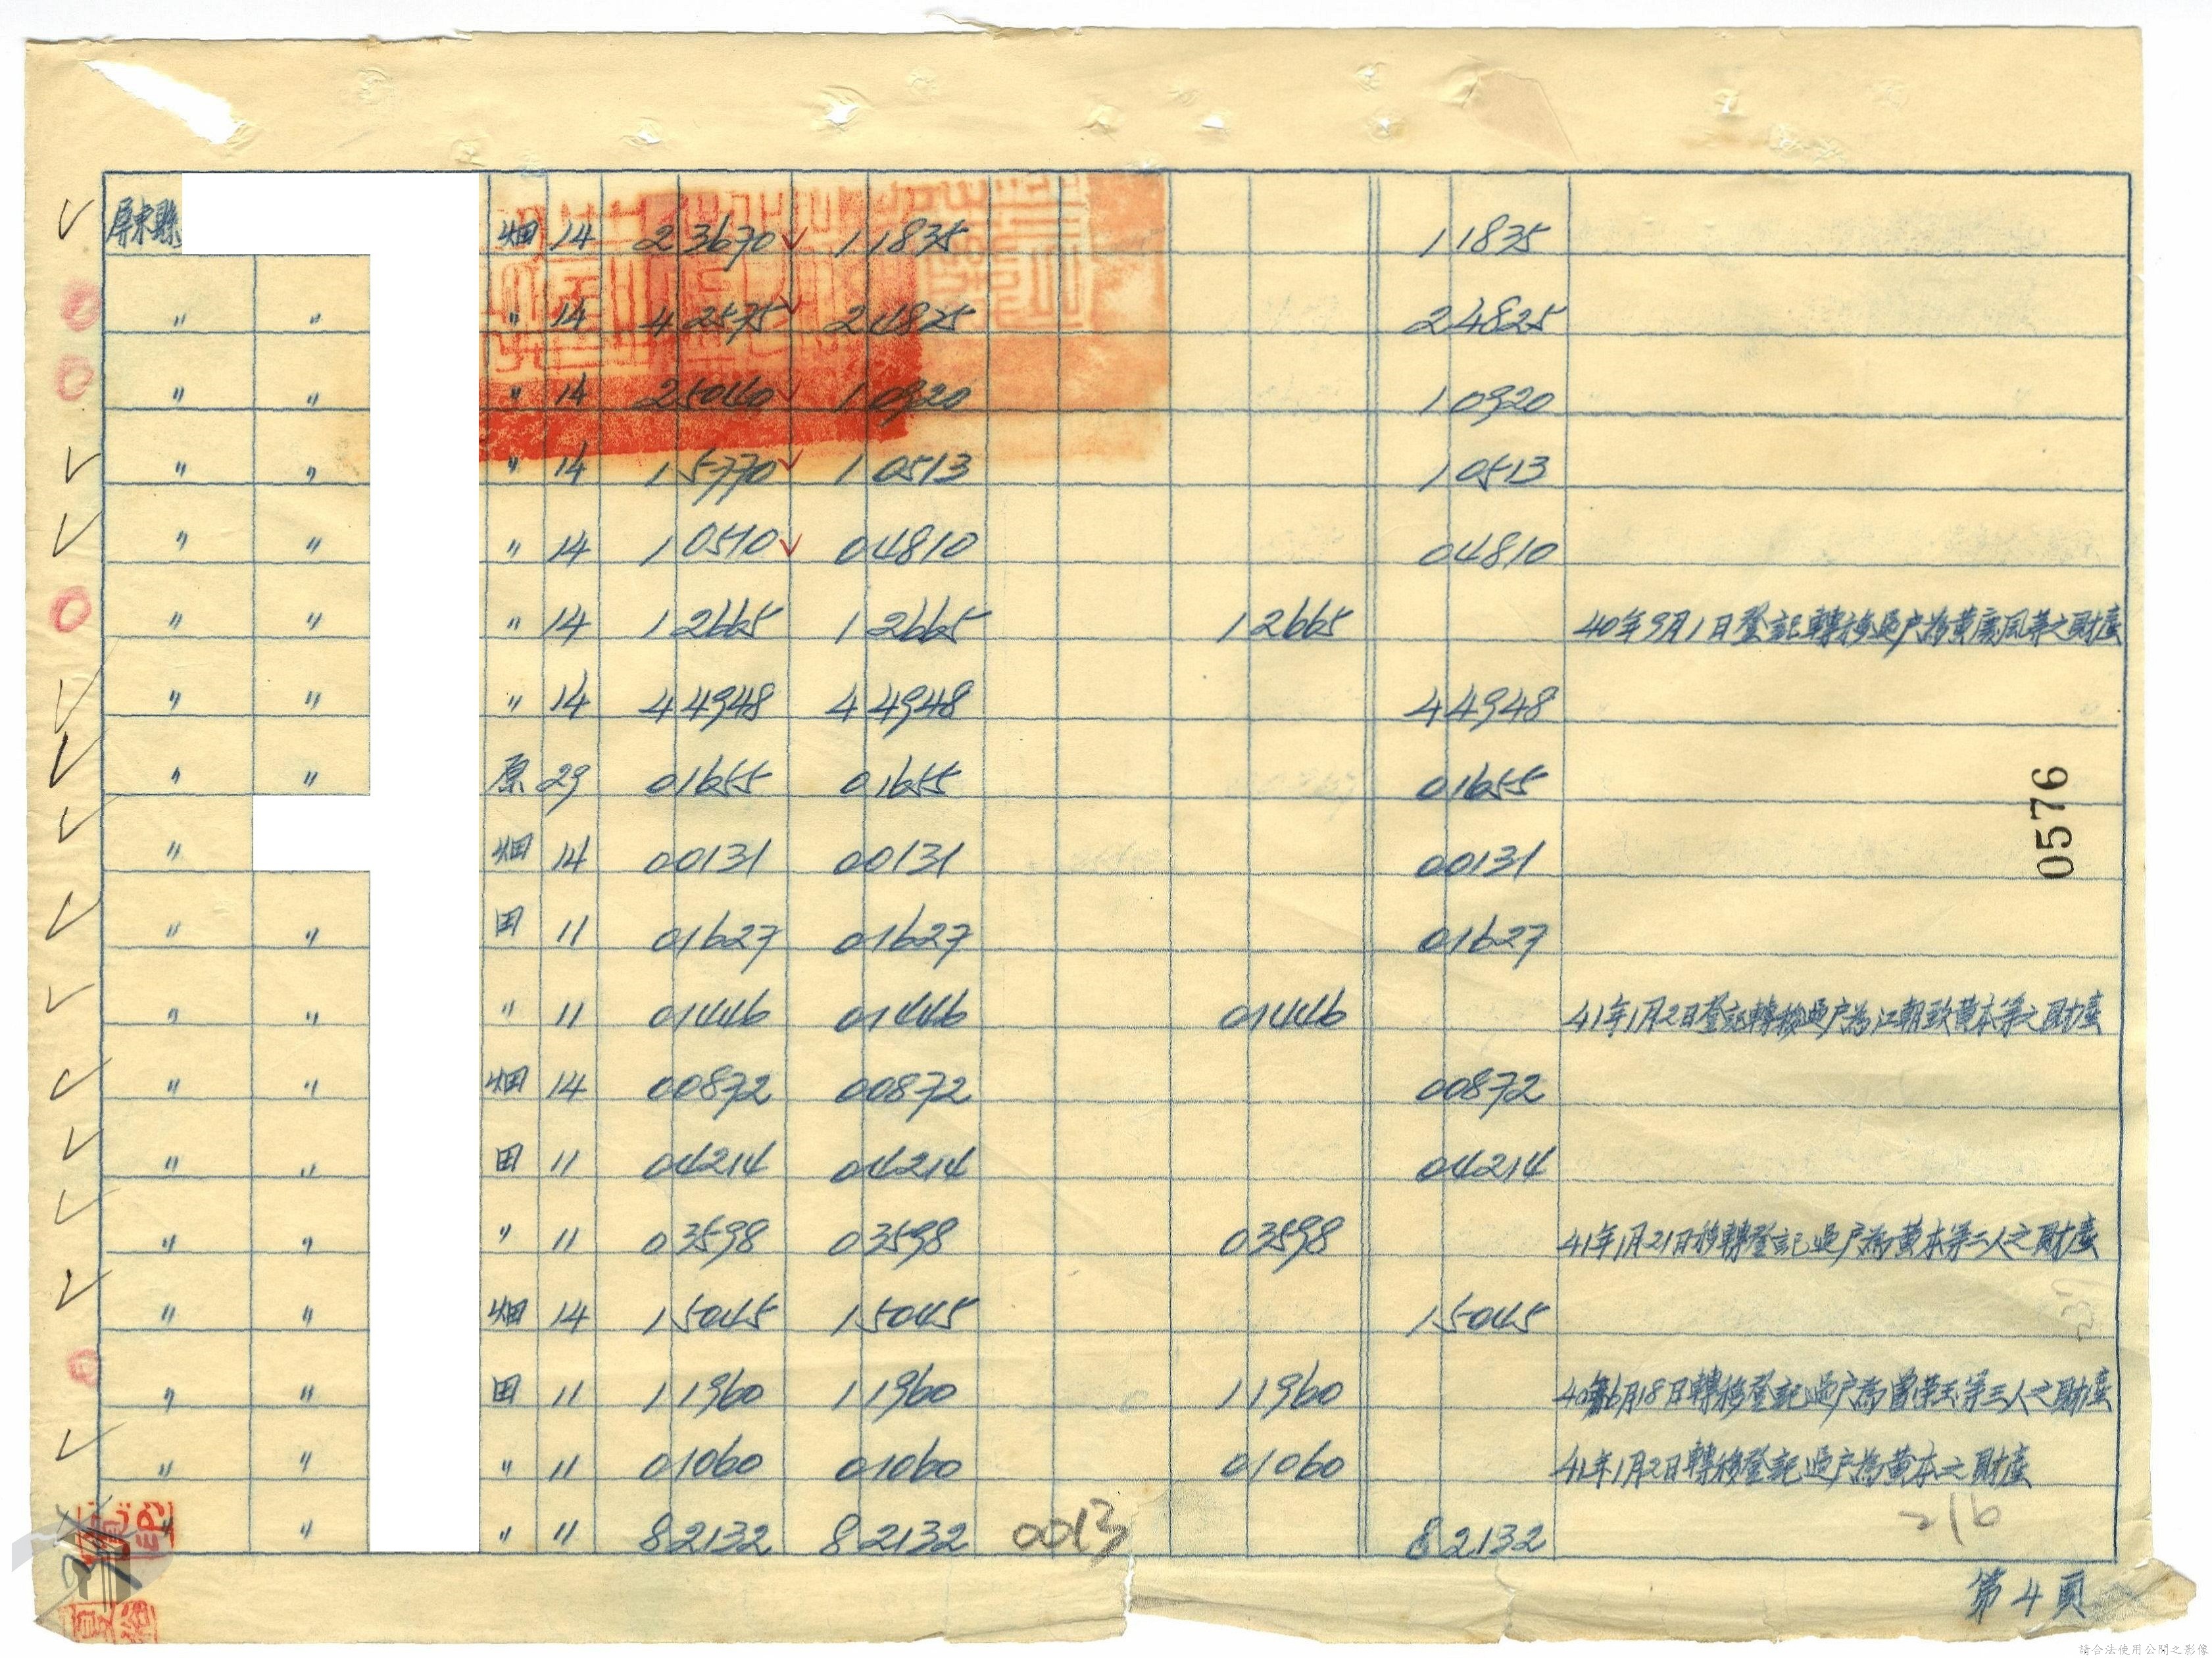 屏東縣 畑 14 23670 11835 11835
〃 〃 〃 14 42575 24825 24825
〃 〃 〃 14 25040 10920 10920
〃 〃 〃 14 15770 10513 10513
〃 〃 〃 14 10510 04810 04810
〃 〃 〃 14 12665 12665 12665 40年9月1日登記轉移過户為黃慶風等之財產
〃 〃 〃 14 44948 44948 44948
〃 〃 原 29 01655 01655 01655
〃 畑 14 00131 00131 00131
〃 〃 田 11 01627 01627 01627
〃 〃 〃 11 01446 01446 01446 41年1月2日登記轉移過户為江朝致黃本等之財產
〃 〃 畑 14 00872 00872 00872
〃 〃 田 11 04214 04214 04214
〃 〃 〃 11 03598 03598 03598 41年1月21日移轉登記過户為黃本等二人之財產
〃 〃 畑 14 15045 15045 15045
〃 〃 田 11 11960 11960 11960 40年6月18日轉移登記過户為曾荣玉等三人之財產
〃 〃 〃 11 01060 01060 01060 41年1月2日轉移登記過户為黃本之財產
〃 〃 〃 11 82132 82132 0013 82132
216
0576
第4頁
請合法使用公開之影像